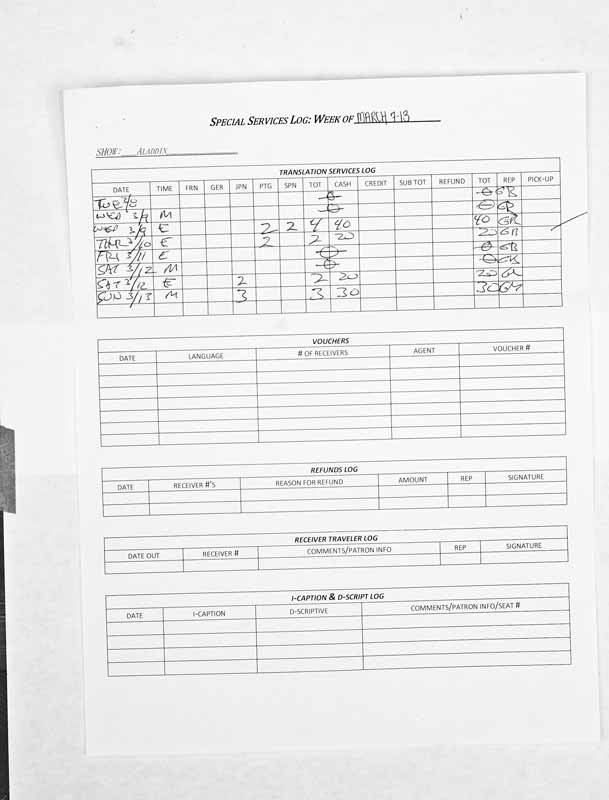 SPECIAL SERVICES LOG: WEEK OF MARCH 7-13
SHOW: ALADDIN
TRANSLATION SERVICES LOG
DATE TIME FRN GER JPN PTG SPN TOT CASH CREDIT SUB TOT REFUND TOT REP PICK-UP
TUE 3/8 0 0 GB
WED 3/9 M 0 0 GB
WED 3/9 E 2 2 4 40 40 GB
THUR 3/10 E 2 2 20 20 GB
FRI 3/11 E 0 0 GB
SAT 3/12 M 0 0
SAT 3/12 E 2 2 20 20
SUN 3/13 M 3 3 30 30 GM
VOUCHERS
DATE LANGUAGE # OF RECEIVERS AGENT VOUCHER #
REFUNDS LOG
DATE RECEIVER #'S REASON FOR REFUND AMOUNT REP SIGNATURE
RECEIVER TRAVELER LOG
DATE OUT RECEIVER # COMMENTS/PATRON INFO REP SIGNATURE
I-CAPTION & D-SCRIPT LOG
DATE I-CAPTION D-SCRIPTIVE COMMENTS/PATRON INFO/SEAT #